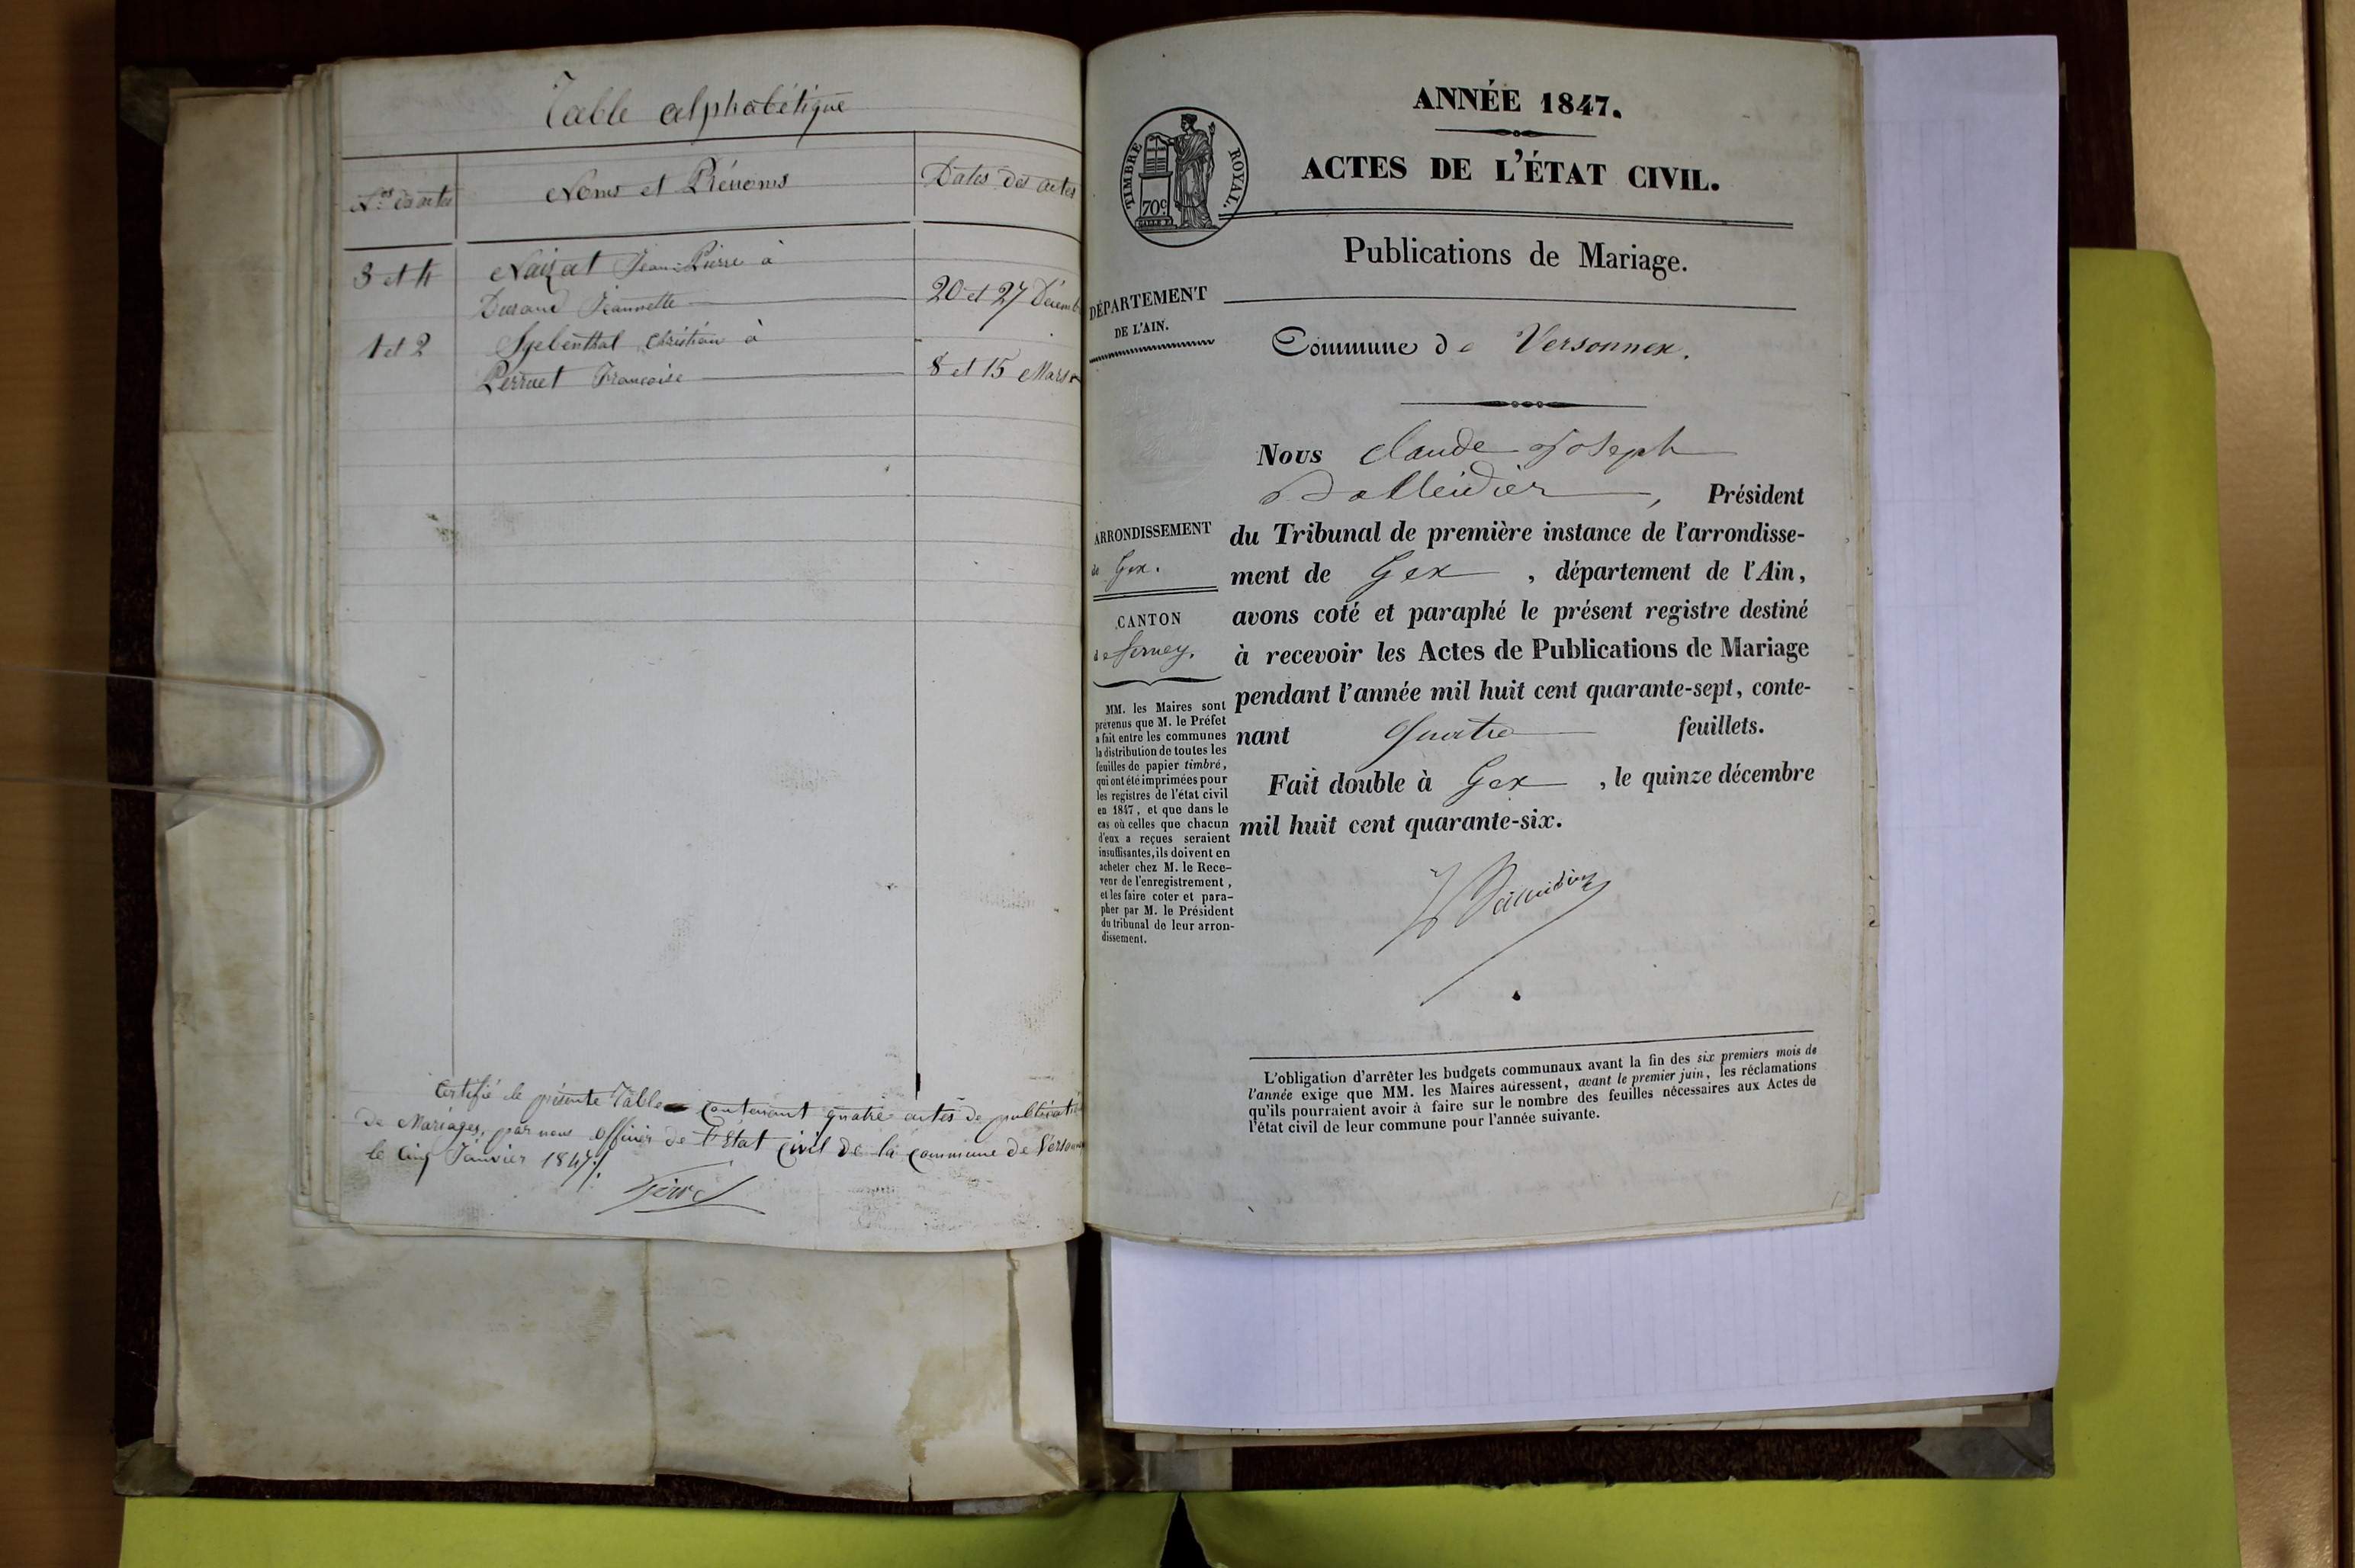 Table alphabétique
Nos des actes
Noms et Prénoms
Dates des actes
3 et 4
Naizat Jean-Pierre à
Durand Jeannette
20 et 27 Décemb
1 et 2
Sgebenthal Chrétien à
Perruet Françoise
8 et 15 Mars
Certifié le présente Table contenant quatre actes de publicati
de Mariages, par nous officier de l'Etat Civil de la commune de Verson
le Cinq Janvier 1847
ANNÉE 1847.
ACTES DE L'ÉTAT CIVIL.
TIMBRE ROYAL.
70c
Publications de Mariage.
DÉPARTEMENT
DE L'AIN.
Commune de Versonnex.
Nous Claude Joseph
Balleidier, Président
du Tribunal de première instance de l'arrondisse-
ment de Gex, département de l'Ain,
avons coté et paraphé le présent registre destiné
à recevoir les Actes de Publications de Mariage
pendant l'année mil huit cent quarante-sept, conte-
nant quatre feuillets.
Fait double à Gex, le quinze décembre
mil huit cent quarante-six.
ARRONDISSEMENT
de Gex.
CANTON
de ferney.
MM. les Maires sont
prévenus que M. le Préfet
a fait entre les communes
la distribution de toutes les
feuilles de papier timbré,
qui ont été imprimées pour
les registres de l'état civil
en 1847, et que dans le
cas où celles que chacun
d'eux a reçues seraient
insuffisantes, ils doivent en
acheter chez M. le Rece-
veur de l'enregistrement,
et les faire coter et para-
pher par M. le Président
du tribunal de leur arron-
dissement.
L'obligation d'arrêter les budgets communaux avant la fin des six premiers mois de
l'année exige que MM. les Maires adressent, avant le premier juin, les réclamations
qu'ils pourraient avoir à faire sur le nombre des feuilles nécessaires aux Actes de
l'état civil de leur commune pour l'année suivante.